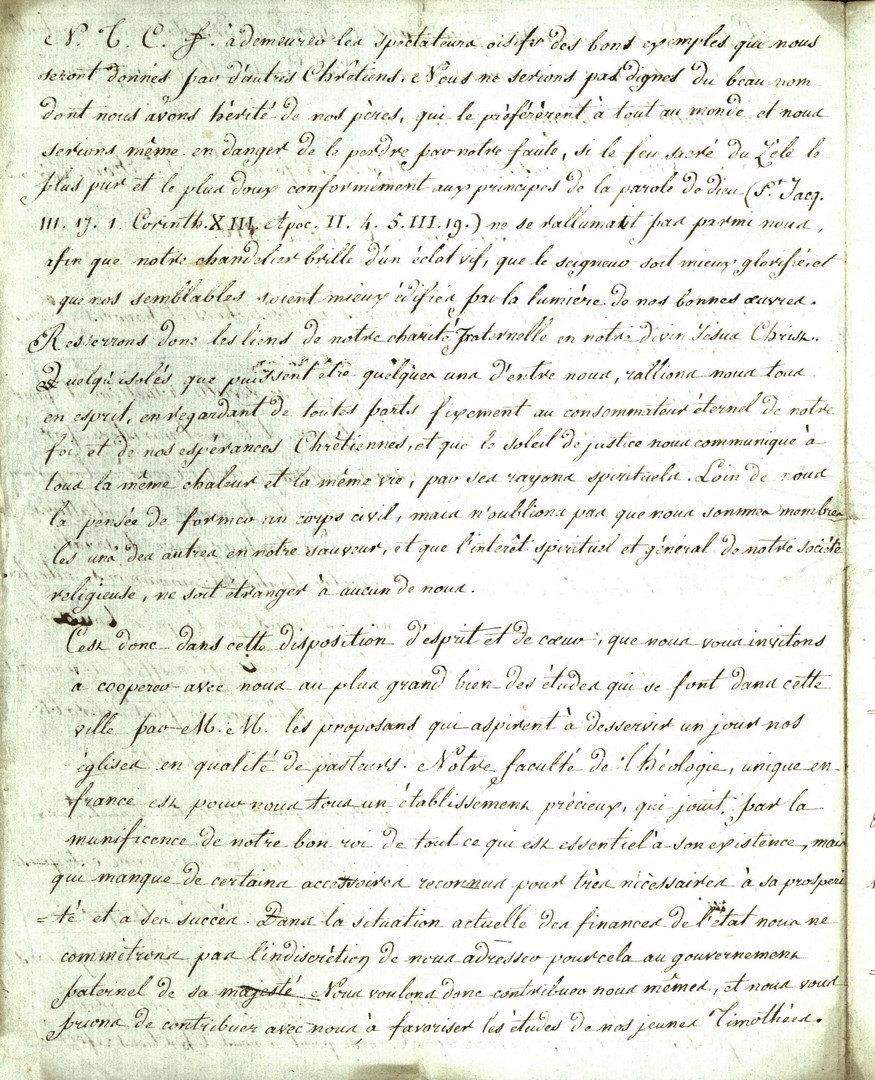 N. T. C. F. à demeurer les spectateurs oisifs des bons exemples qui nous
seront donnés par d'autres Chrêtiens. Nous ne serions pas dignes du beau nom
dont nous avons hérité de nos pères, qui le préférèrent à tout au monde et nous
serions même en danger de le perdre par notre faute, si le feu sacré du Zèle le
plus pur et le plus doux conformément aux principes de la parole de dieu (St. Jacq.
III. 17. 1 Corinth. XIII. Apoc. II. 4. 5. III. 19.) ne se rallumait pas parmi nous,
afin que notre chandelier brille d'un éclat vif, que le seigneur soit mieux glorifié, et
que nos semblables soient mieux édifiés par la lumière de nos bonnes œuvres.
Resserrons donc les liens de notre charité fraternelle en notre divin Jésus Christ.
Quelqu'isolés que puissent être quelques uns d'entre nous, rallions nous tous
en esprit, en regardant de toutes parts fixement au consommateur éternel de notre
foi et de nos espérances Chrêtiennes, et que le soleil de justice nous communique à
tous la même chaleur et la même vie, par ses rayons spirituels. Loin de nous
la pensée de former un corps civil, mais n'oublions pas que nous sommes membres
les uns des autres en notre sauveur, et que l'intérêt spirituel et général de notre société
religieuse, ne soit étranger à aucun de nous.
C'est donc dans cette disposition d'esprit et de cœur, que nous vous invitons
à cooperer avec nous au plus grand bien des études qui se font dans cette
ville par M. M. les proposans qui aspirent à desservir un jour nos
églises en qualité de pasteurs. Notre faculté de Théologie, unique en
france est pour nous tous un établissement précieux, qui jouit, par la
munificence de notre bon roi de tout ce qui est essentiel à son existence, mais
qui manque de certains accessoires reconnus pour très nécessaires à sa prospéri
=té et à ses succès. Dans la situation actuelle des finances de l'état nous ne
commettrons pas l'indiscrétion de nous adresser pour cela au gouvernement
paternel de sa majesté. Nous voulons donc contribuer nous mêmes, et nous vous
prions de contribuer avec nous à favoriser les études de nos jeunes Timothées.